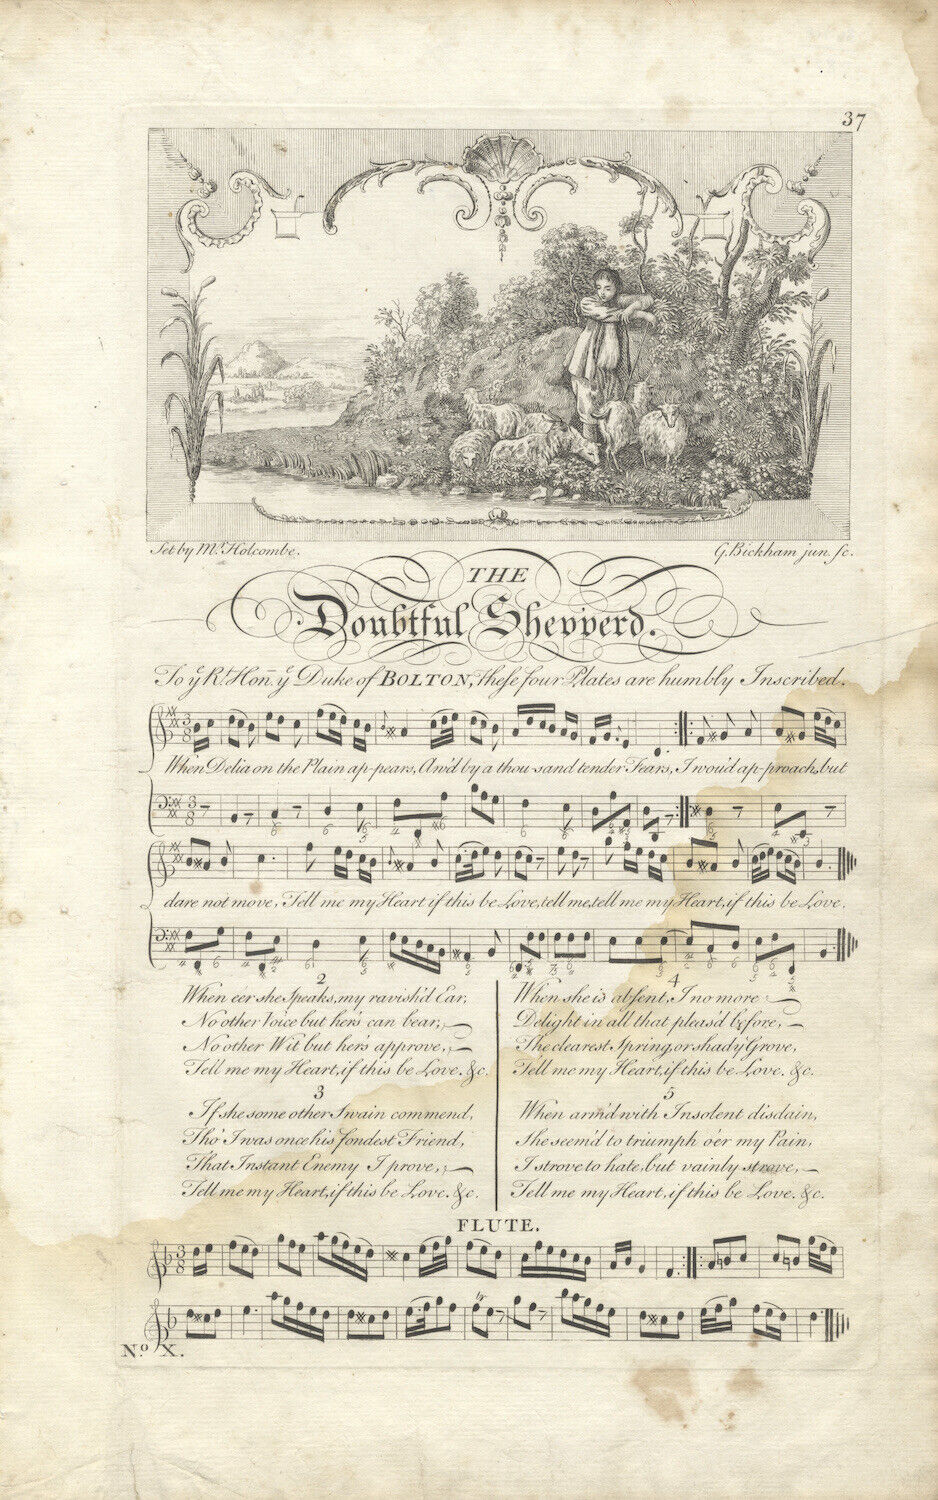 37
Set by Mr. Holcombe.
G. Bickham jun. sc.
THE
Doubtful Shepperd.
To ye. Rt. Honn. ye Duke of BOLTON, these four Plates are humbly Inscribed.
When Delia on the Plain ap-pears, Aw'd by a thou-sand tender Fears, I wou'd ap-proach, but
dare not move, Tell me my Heart if this be Love, tell me, tell me my Heart, if this be Love.
2
When e'er she Speaks, my ravish'd Ear,
No other Voice but her's can bear,
No other Wit but her's approve,
Tell me my Heart, if this be Love. &c.
3
If she some other Swain commend,
Tho' I was once his fondest Friend,
That Instant Enemy I prove,
Tell me my Heart, if this be Love. &c.
4
When she is absent, I no more
Delight in all that pleas'd before,
The clearest Spring, or shady Grove,
Tell me my Heart, if this be Love. &c.
5
When arm'd with Insolent disdain,
She seem'd to triumph o'er my Pain,
I strove to hate, but vainly strove,
Tell me my Heart, if this be Love. &c.
FLUTE.
No. X.